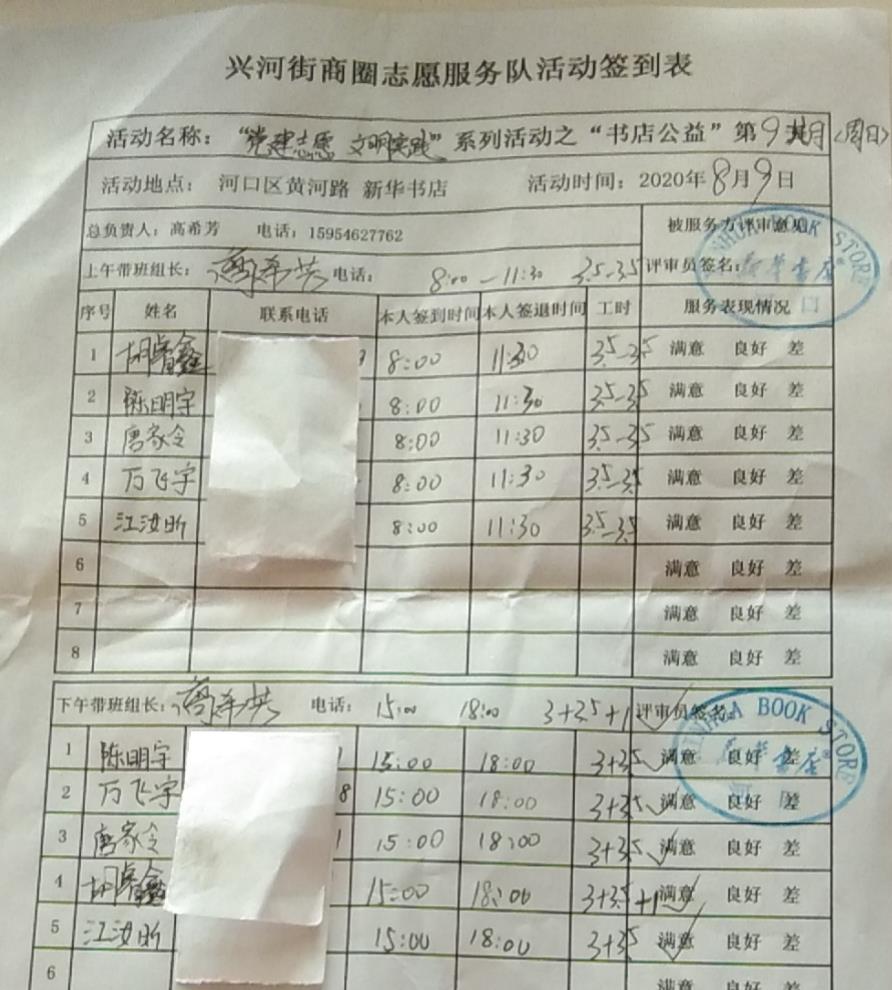 兴河街商圈志愿服务队活动签到表
活动名称：“党建志愿 文明实践”系列活动之“书店公益”第9 月（周日）
活动地点： 河口区黄河路 新华书店 活动时间：2020年8月9日
总负责人：高希芳 电话：15954627762 被服务方评审意见
上午带班组长： 电话： 8:00—11:30 3.5-3.5 评审员签名：
XINHUA BOOK STORE
新华书店
序号 姓名 联系电话 本人签到时间 本人签退时间 工时 服务表现情况
1 胡睿鑫 8:00 11:30 3.5-3.5 满意 良好 差
2 陈明宇 8:00 11:30 3.5-3.5 满意 良好 差
3 唐家令 8:00 11:30 3.5-3.5 满意 良好 差
4 万飞宇 8:00 11:30 3.5-3.5 满意 良好 差
5 江汝昕 8:00 11:30 3.5-3.5 满意 良好 差
6 满意 良好 差
7 满意 良好 差
8 满意 良好 差
下午带班组长： 电话： 15:00 18:00 3+3.5+1 评审员签名：
XINHUA BOOK STORE
新华书店
1 陈明宇 1 15:00 18:00 3+3.5 满意 良好 差
2 万飞宇 8 15:00 18:00 3+3.5 满意 良好 差
3 唐家令 1 15:00 18:00 3+3.5 满意 良好 差
4 胡睿鑫 15:00 18:00 3+3.5+1 满意 良好 差
5 江汝昕 15:00 18:00 3+3.5 满意 良好 差
6 满意 良好 差